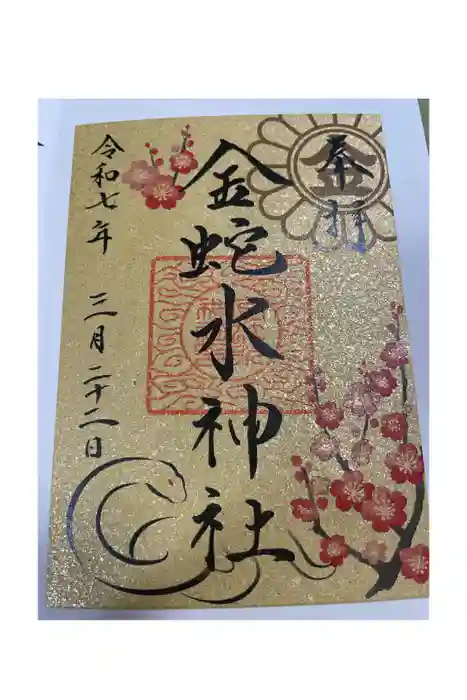 奉拝
金
金蛇水神社
令和七年 三月二十二日